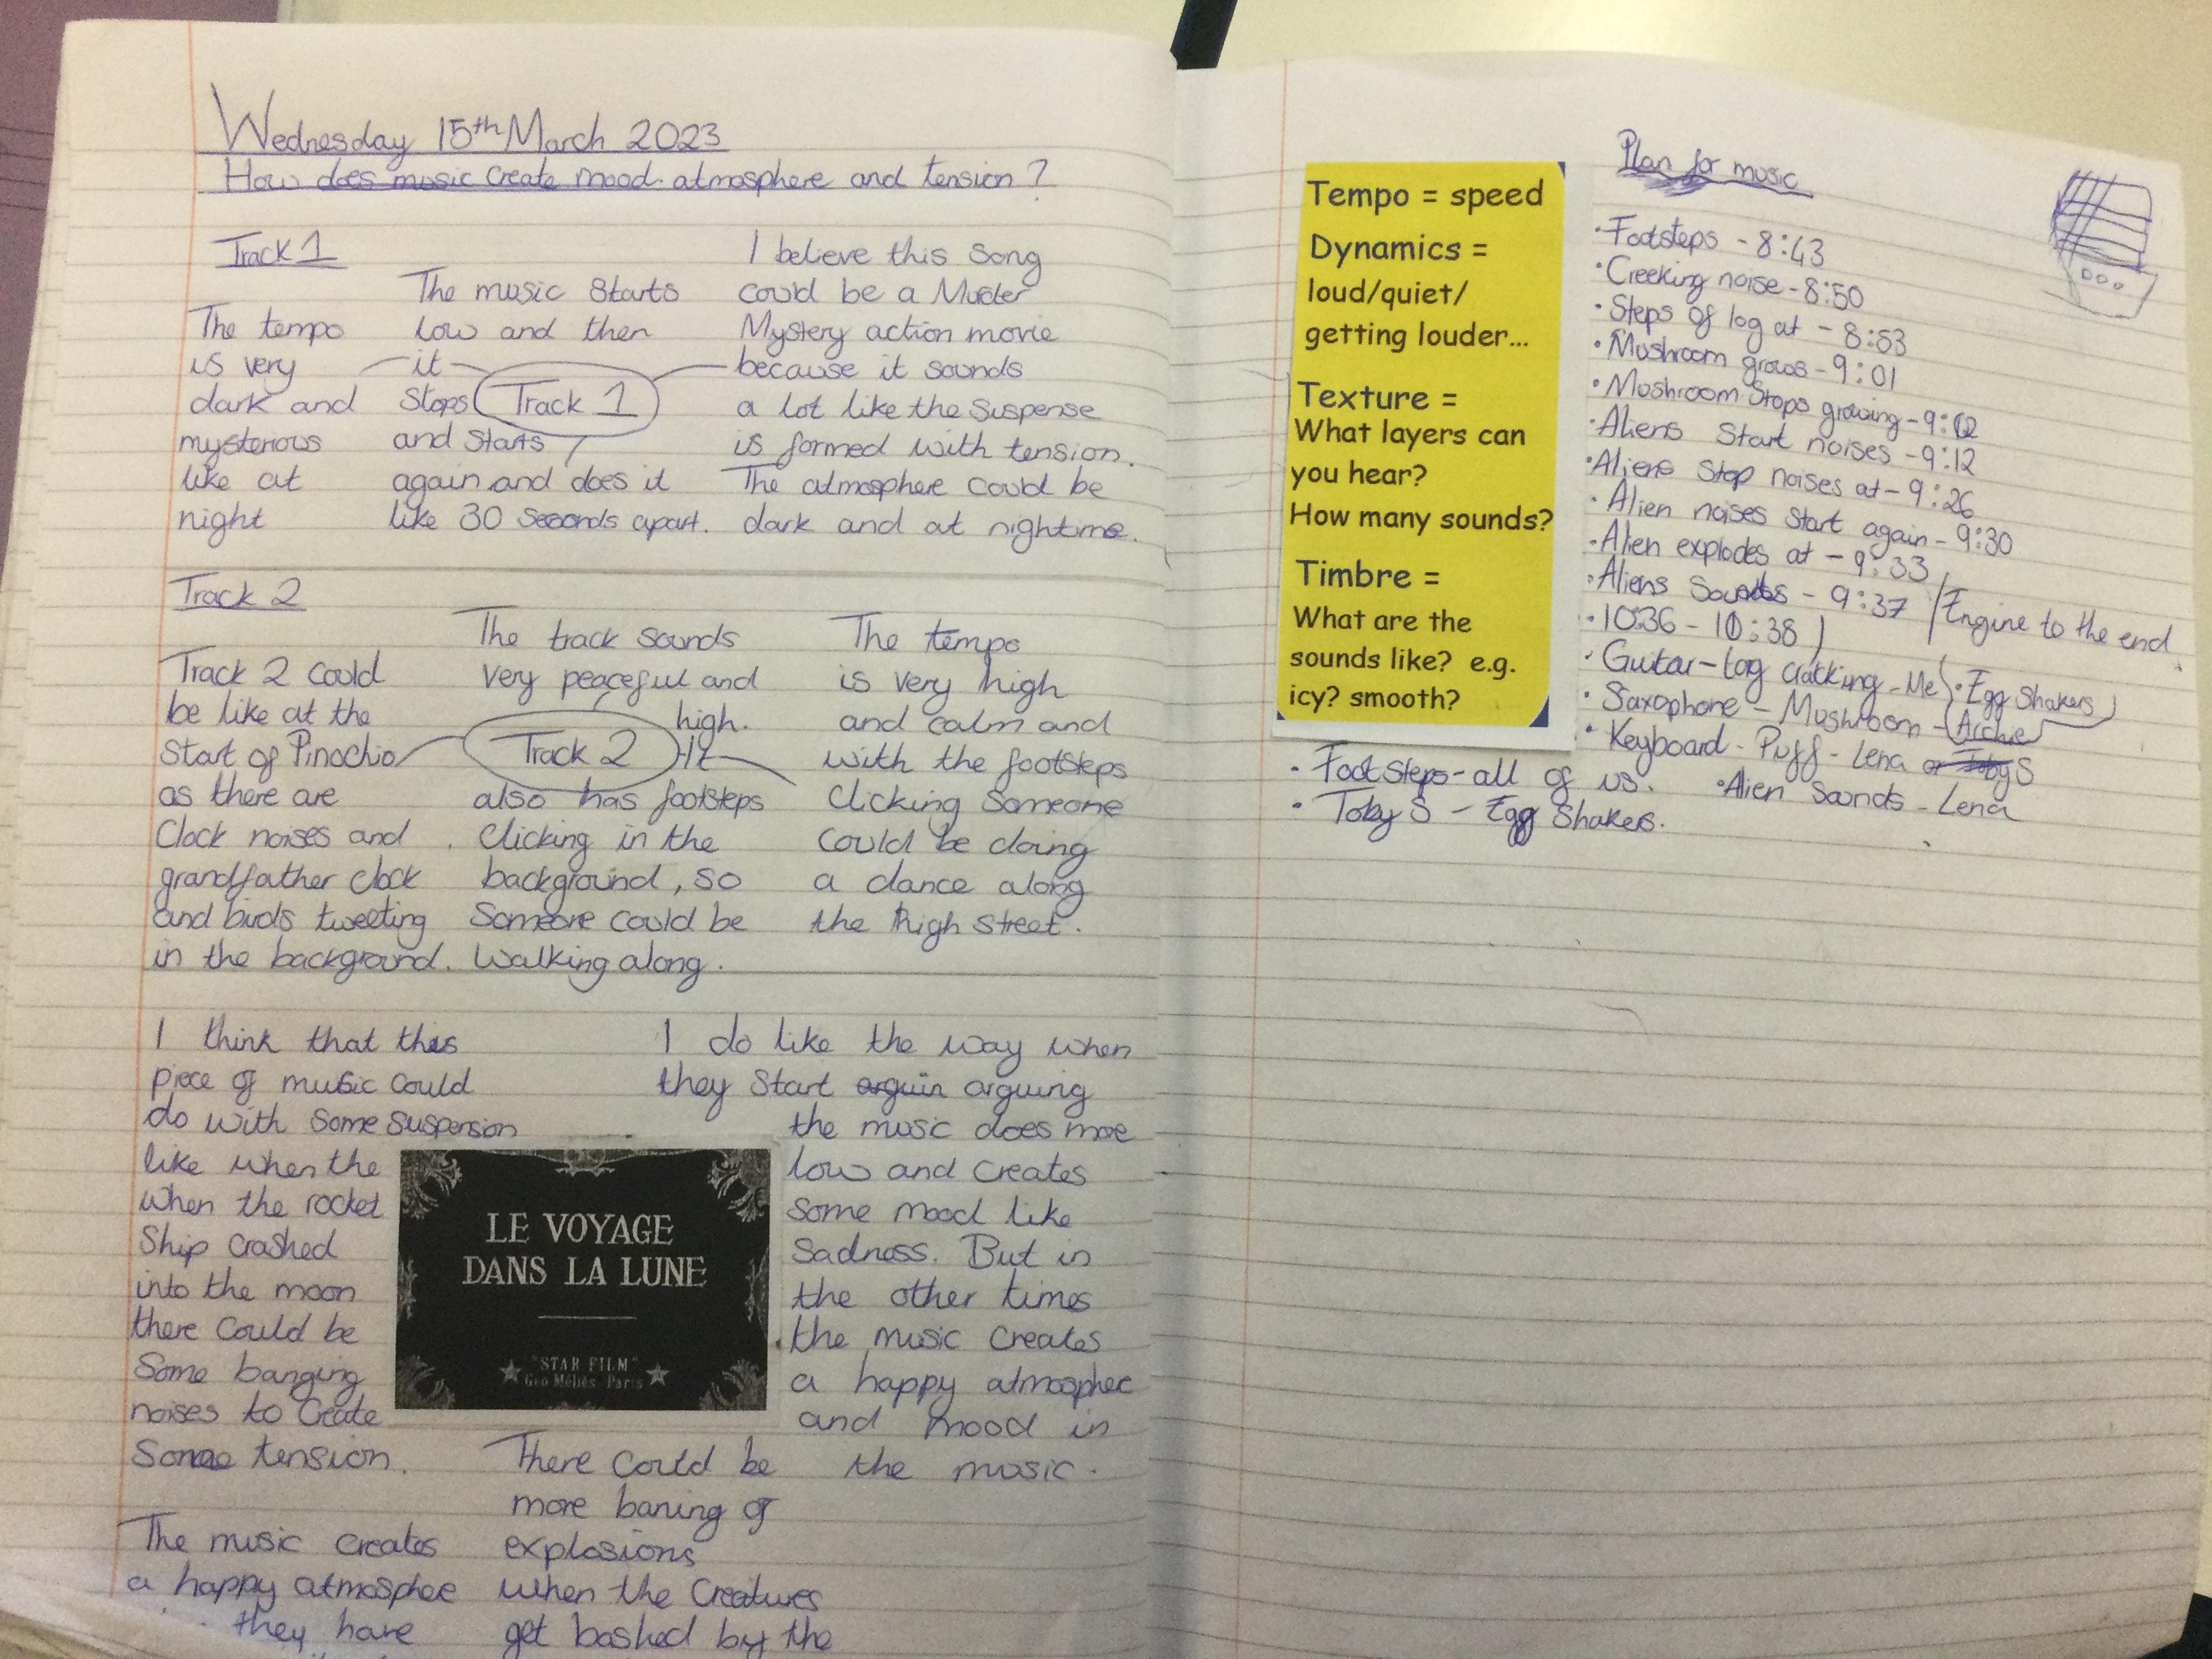 Wednesday 15th March 2023
How does music create mood. atmosphere and tension?
Track 1
The tempo
is very
dark and
mysterious
like at
night
The music starts
low and then
it
stops
and starts
again and does it
like 30 seconds apart.
Track 1
I believe this song
could be a Murder
Mystery action movie
because it sounds
a lot like the suspense
is formed with tension.
The atmosphere could be
dark and at nightime.
Track 2
Track 2 could
be like at the
start of Pinochio
as there are
clock noises and
grandfather clock
and birds tweeting
in the background.
The track sounds
very peaceful and
high.
It
also has footsteps
clicking in the
background, so
someone could be
walking along.
Track 2
The tempo
is very high
and calm and
with the footsteps
clicking someone
could be doing
a dance along
the high street.
I think that this
piece of music could
do with some suspension
like when the
when the rocket
ship crashed
into the moon
there could be
some banging
noises to create
some tension.
LE VOYAGE
DANS LA LUNE
"STAR FILM"
Geo Méliès Paris
I do like the way when
they start arguin arguing
the music does more
low and creates
some mood like
sadness. But in
the other times
the music creates
a happy atmosphee
and mood in
the music.
The music creates
a happy atmosphee
they have
There could be
more baning of
explosions
when the creatures
get bashed by the
Tempo = speed
Dynamics =
loud/quiet/
getting louder...
Texture =
What layers can
you hear?
How many sounds?
Timbre =
What are the
sounds like? e.g.
icy? smooth?
Plan for music
• Footsteps - 8:43
• Creeking noise - 8:50
• Steps of log at - 8:53
• Mushroom grows - 9:01
• Mushroom stops growing - 9:02
• Aliens start noises - 9:12
• Aliens stop noises at - 9:26
• Alien noises start again - 9:30
• Alien explodes at - 9:33
• Aliens sounds - 9:37
• 10:36 - 10:38
Engine to the end
• Guitar - log cracking - Me
• Egg Shakers
• Saxophone - Mushroom - Archie
• Keyboard - Puff - Lena or Toby S
• Footsteps - all of us.
• Alien sounds - Lena
• Toby S - Egg Shakers.